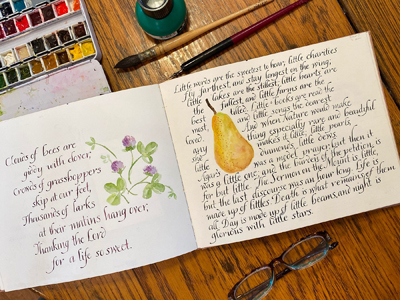 Clouds of bees are
giddy with clover,
Crowds of grasshoppers
skip at our feet,
Thousands of larks
at their matins hang over,
Thanking the Lord
for a life so sweet.
Little words are the sweetest to hear; little charities
fly farthest, and stay longest on the wing;
little lakes are the stillest; little hearts are
the fullest, and little farms are the
best tilled. Little books are read the
most, and little songs the dearest
loved. And when Nature would make
anything especially rare and beautiful
she makes it little; little pearls,
little diamonds, little dews.
Agur's was a model prayer; but then it
was a little one; and the burden of the petition is
for but little. The Sermon on the Mount is little,
but the last discourse was an hour long. Life is
made up of littles; Death is what remains of them
all. Day is made up of little beams, and night is
glorious with little stars.